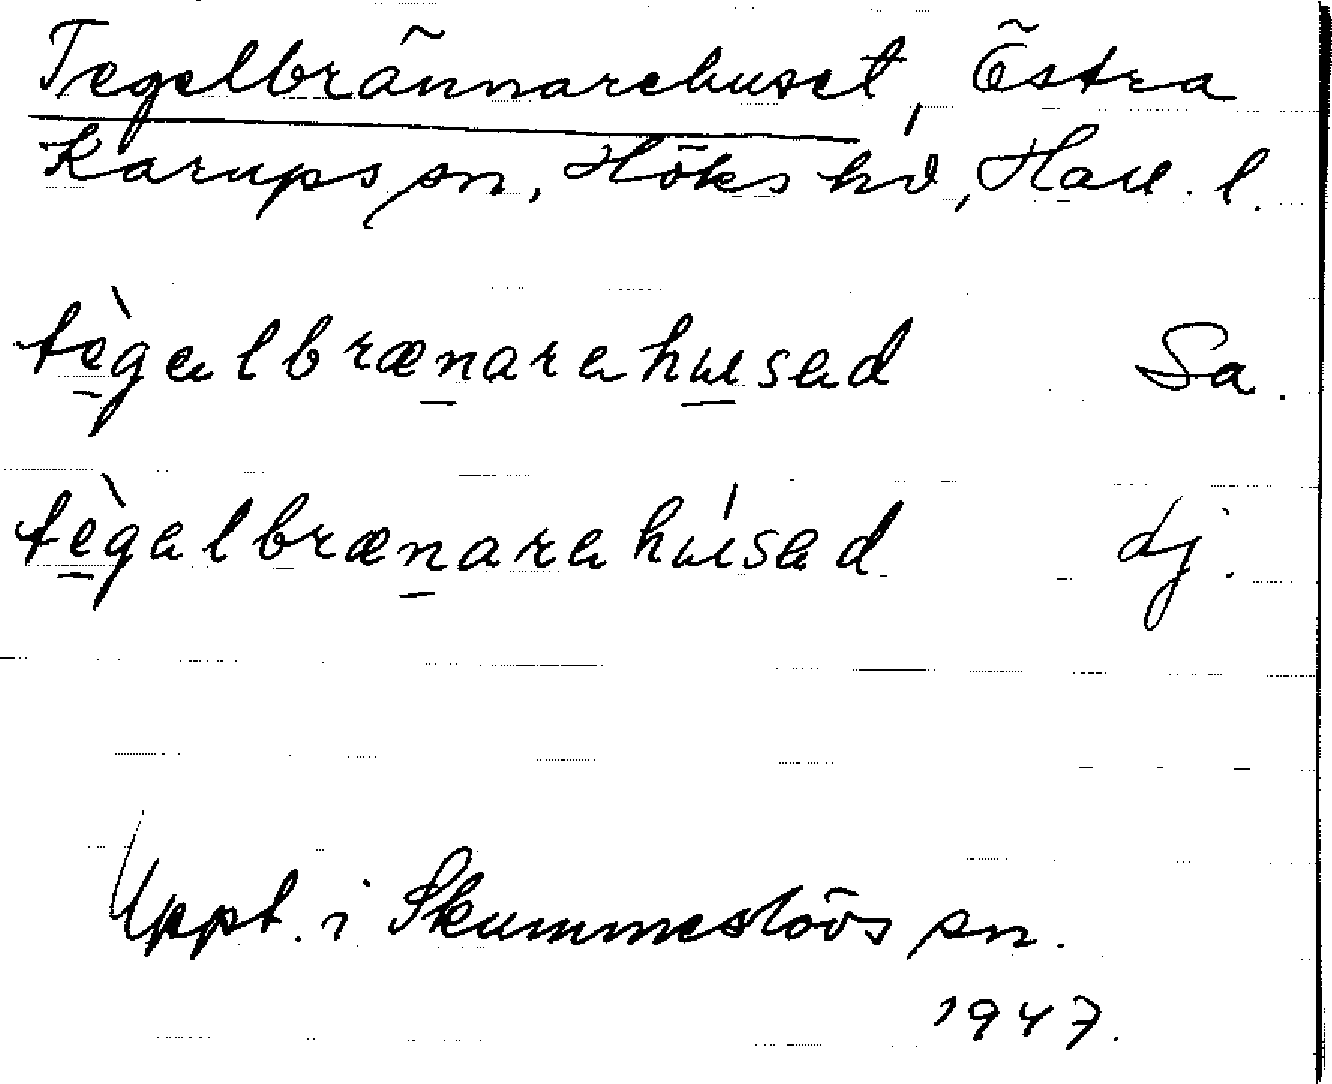 Tegelbrännarehuset, Östra
Karups sn, Höks hd, Hall. l.
tègəlbrænarəhusəd Sa.
tègəlbrænarəhúsəd dj.
Uppt. i Skummeslövs sn.
1947.